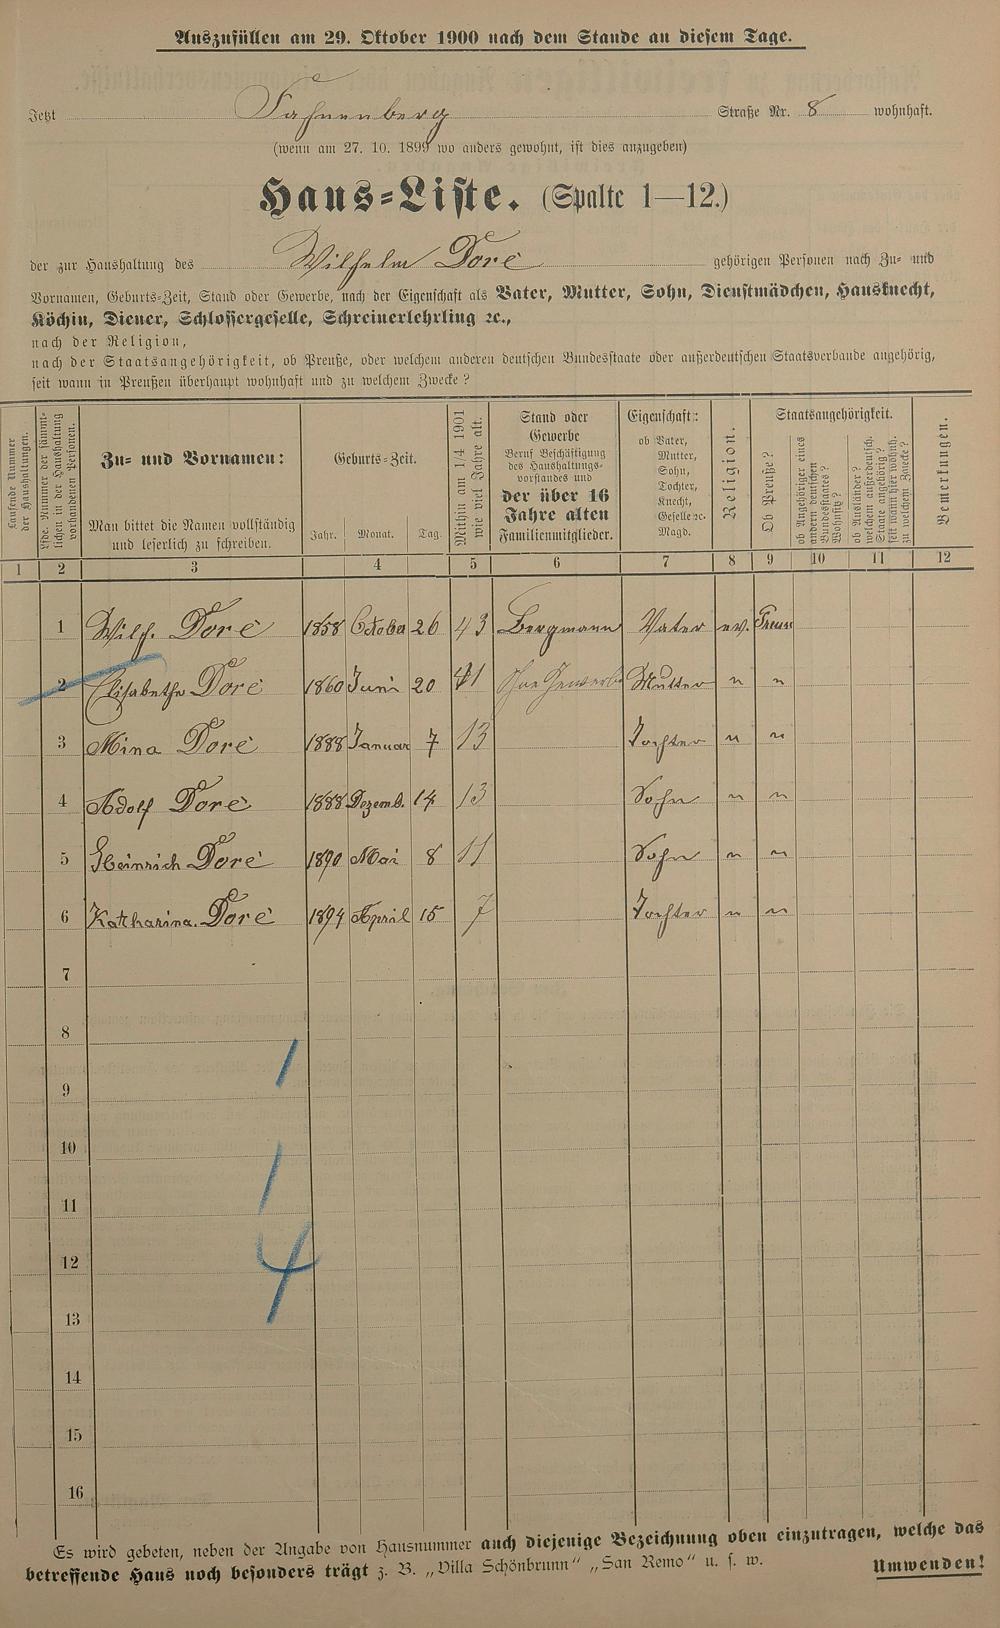 Auszufüllen am 29. Oktober 1900 nach dem Stande an diesem Tage.
Jetzt Fahnenberg Straße Nr. 8 wohnhaft.
(wenn am 27. 10. 1899 wo anders gewohnt, ist dies anzugeben)
Haus-Liste. (Spalte 1—12.)
der zur Haushaltung des Wilhelm Doré gehörigen Personen nach Zu- und
Vornamen, Geburts-Zeit, Stand oder Gewerbe, nach der Eigenschaft als Vater, Mutter, Sohn, Dienstmädchen, Hausknecht,
Köchin, Diener, Schlossergeselle, Schreinerlehrling ec.,
nach der Religion,
nach der Staatsangehörigkeit, ob Preuße, oder welchem anderen deutschen Bundesstaate oder außerdeutschen Staatsverbande angehörig,
seit wann in Preußen überhaupt wohnhaft und zu welchem Zwecke?
Laufende Nummer der Haushaltungen.
Lfde. Nummer der sämmtlichen in der Haushaltung vorhandenen Personen.
Zu- und Vornamen:
Man bittet die Namen vollständig
und leserlich zu schreiben.
Geburts-Zeit.
Jahr. Monat. Tag.
Mithin am 1/4 1901 wie viel Jahre alt.
Stand oder
Gewerbe
Beruf Beschäftigung
des Haushaltungs-
vorstandes und
der über 16
Jahre alten
Familienmitglieder.
Eigenschaft:
ob Vater,
Mutter,
Sohn,
Tochter,
Knecht,
Geselle ec.
Magd.
Religion.
Staatsangehörigkeit.
Ob Preuße?
ob Angehöriger eines andern deutschen Bundesstaates? Wohnsitz?
ob Ausländer? welchem außerdeutsch. Staate angehörig? seit wann hier wohnh. zu welchem Zwecke?
Bemerkungen.
1 2 3 4 5 6 7 8 9 10 11 12
1 Wilh. Doré 1858 Octobe 26 43 Bergmann Vater ev.
2 Elisabethe Doré 1860 Juni 20 41 Ohne Gewerbe Mutter " "
3 Mina Doré 1888 Januar 7 13 Tochter " "
4 Adolf Doré 1888 Dezemb. 14 13 Sohn " "
5 Heinrich Doré 1890 Mai 8 11 Sohn " "
6 Katharina Doré 1894 April 15 7 Tochter " "
7
8
9
1
10
11
1
12
4
13
14
15
16
Es wird gebeten, neben der Angabe von Hausnummer auch diejenige Bezeichnung oben einzutragen, welche das
betreffende Haus noch besonders trägt z. B. „Villa Schönbrunn" „San Remo" u. s. w.
Umwenden!